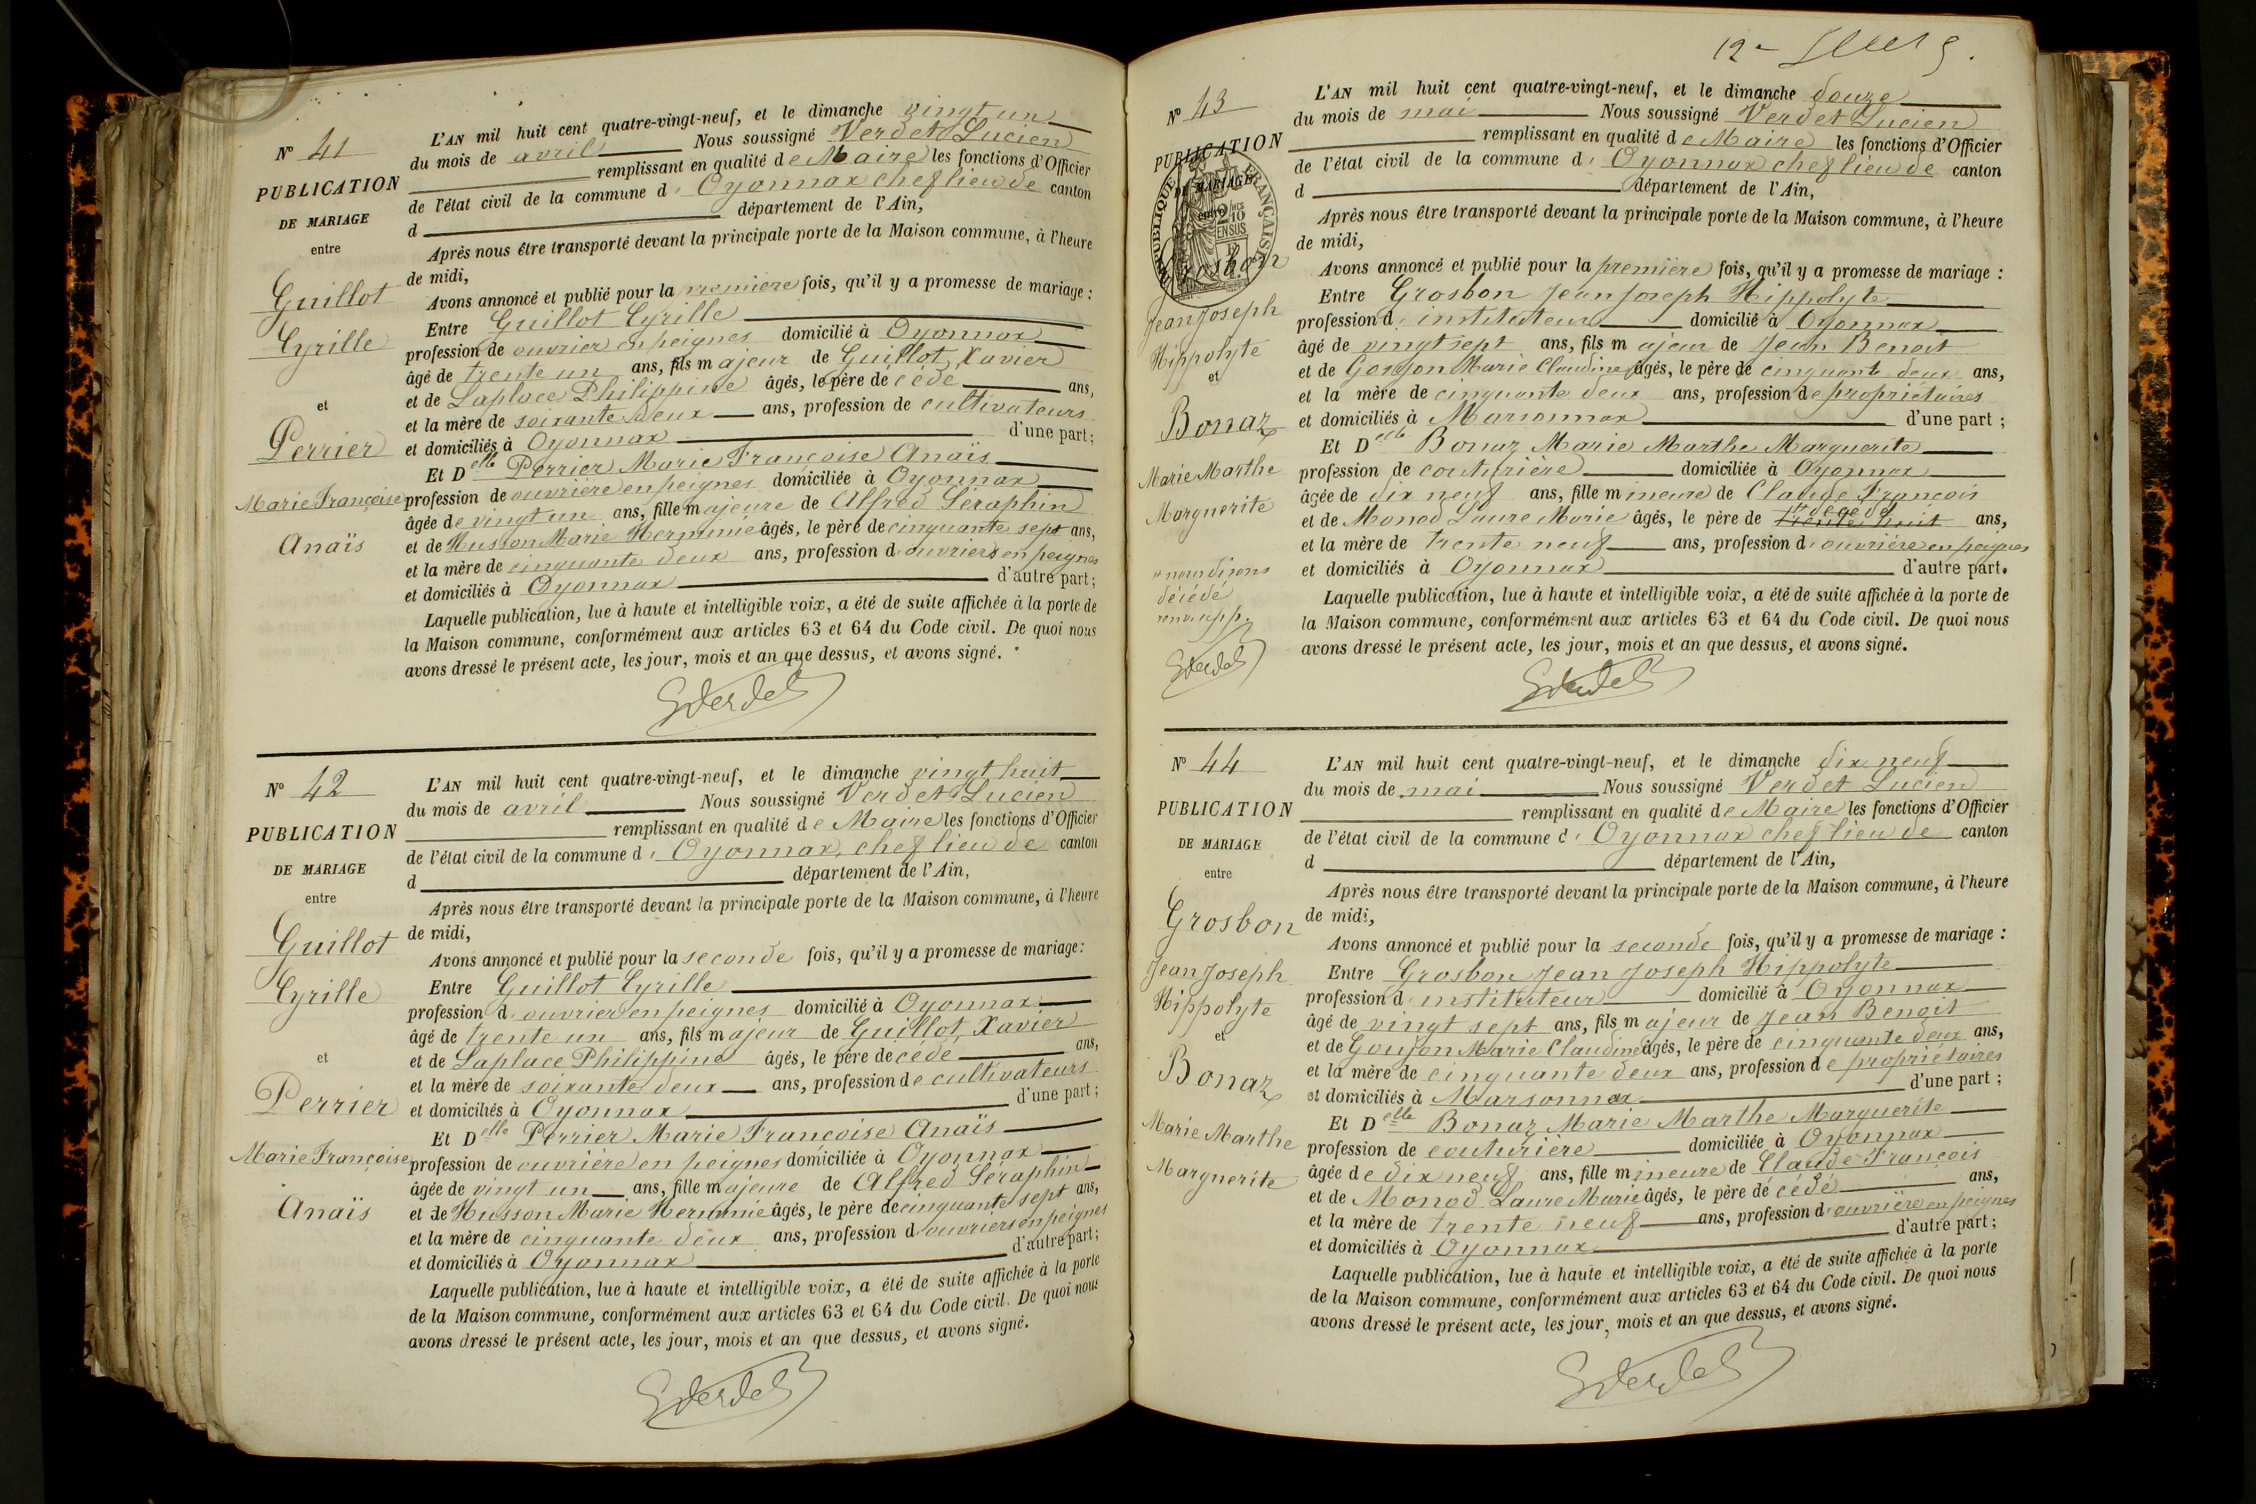 N° 41
PUBLICATION
DE MARIAGE
entre
Guillot
Cyrille
et
Perrier
Marie Françoise
Anaïs
L'AN mil huit cent quatre-vingt-neuf, et le dimanche vingt un
du mois de avril Nous soussigné Verdet Lucien
remplissant en qualité de Maire les fonctions d'Officier
de l'état civil de la commune d' Oyonnax chef lieu de canton
d département de l'Ain,
Après nous être transporté devant la principale porte de la Maison commune, à l'heure
de midi,
Avons annoncé et publié pour la première fois, qu'il y a promesse de mariage :
Entre Guillot Cyrille
profession de ouvrier en peignes domicilié à Oyonnax
âgé de trente un ans, fils majeur de Guillot, Xavier
et de Laplace Philippine âgés, le père décédé ans,
et la mère de soixante deux ans, profession de cultivateurs
et domiciliés à Oyonnax d'une part ;
Et Delle Perrier Marie Françoise Anaïs
profession de ouvrière en peignes domiciliée à Oyonnax
âgée de vingt un ans, fille majeure de Alfred Séraphin
et de Husson Marie Herminie âgés, le père de cinquante sept ans,
et la mère de cinquante deux ans, profession d'ouvriers en peignes
et domiciliés à Oyonnax d'autre part ;
Laquelle publication, lue à haute et intelligible voix, a été de suite affichée à la porte de
la Maison commune, conformément aux articles 63 et 64 du Code civil. De quoi nous
avons dressé le présent acte, les jour, mois et an que dessus, et avons signé.
N° 42
PUBLICATION
DE MARIAGE
entre
Guillot
Cyrille
et
Perrier
Marie Françoise
Anaïs
L'AN mil huit cent quatre-vingt-neuf, et le dimanche vingt huit
du mois de avril Nous soussigné Verdet Lucien
remplissant en qualité de Maire les fonctions d'Officier
de l'état civil de la commune d' Oyonnax, chef lieu de canton
d département de l'Ain,
Après nous être transporté devant la principale porte de la Maison commune, à l'heure
de midi,
Avons annoncé et publié pour la seconde fois, qu'il y a promesse de mariage :
Entre Guillot Cyrille
profession d'ouvrier en peignes domicilié à Oyonnax
âgé de trente un ans, fils majeur de Guillot, Xavier
et de Laplace Philippine âgés, le père décédé ans,
et la mère de soixante deux ans, profession de cultivateurs
et domiciliés à Oyonnax d'une part ;
Et Delle Perrier Marie Françoise Anaïs
profession de ouvrière en peignes domiciliée à Oyonnax
âgée de vingt un ans, fille majeure de Alfred Séraphin
et de Husson Marie Herminie âgés, le père de cinquante sept ans,
et la mère de cinquante deux ans, profession d'ouvriers en peignes
et domiciliés à Oyonnax d'autre part ;
Laquelle publication, lue à haute et intelligible voix, a été de suite affichée à la porte
de la Maison commune, conformément aux articles 63 et 64 du Code civil. De quoi nous
avons dressé le présent acte, les jour, mois et an que dessus, et avons signé.
N° 43
PUBLICATION
DE MARIAGE
entre
RÉPUBLIQUE FRANÇAISE
Grosbon
Jean Joseph
Hippolyte
et
Bonaz
Marie Marthe
Marguerite
nous disons
décédé
L'AN mil huit cent quatre-vingt-neuf, et le dimanche douze
du mois de mai Nous soussigné Verdet Lucien
remplissant en qualité de Maire les fonctions d'Officier
de l'état civil de la commune d' Oyonnax chef lieu de canton
d département de l'Ain,
Après nous être transporté devant la principale porte de la Maison commune, à l'heure
de midi,
Avons annoncé et publié pour la première fois, qu'il y a promesse de mariage :
Entre Grosbon Jean Joseph Hippolyte
profession d'instituteur domicilié à Oyonnax
âgé de vingt sept ans, fils majeur de Jean Benoit
et de Goujon Marie Claudine âgés, le père de cinquante deux ans,
et la mère de cinquante deux ans, profession de propriétaires
et domiciliés à Marsonnax d'une part ;
Et Delle Bonaz Marie Marthe Marguerite
profession de couturière domiciliée à Oyonnax
âgée de dix neuf ans, fille mineure de Claude François
et de Monod Laure Marie âgés, le père de trente huit ans,
et la mère de trente neuf ans, profession d'ouvrière en peignes
et domiciliés à Oyonnax d'autre part.
Laquelle publication, lue à haute et intelligible voix, a été de suite affichée à la porte de
la Maison commune, conformément aux articles 63 et 64 du Code civil. De quoi nous
avons dressé le présent acte, les jour, mois et an que dessus, et avons signé.
N° 44
PUBLICATION
DE MARIAGE
entre
Grosbon
Jean Joseph
Hippolyte
et
Bonaz
Marie Marthe
Marguerite
L'AN mil huit cent quatre-vingt-neuf, et le dimanche dix neuf
du mois de mai Nous soussigné Verdet Lucien
remplissant en qualité de Maire les fonctions d'Officier
de l'état civil de la commune d' Oyonnax chef lieu de canton
d département de l'Ain,
Après nous être transporté devant la principale porte de la Maison commune, à l'heure
de midi,
Avons annoncé et publié pour la seconde fois, qu'il y a promesse de mariage :
Entre Grosbon Jean Joseph Hippolyte
profession d'instituteur domicilié à Oyonnax
âgé de vingt sept ans, fils majeur de Jean Benoit
et de Goujon Marie Claudine âgés, le père de cinquante deux ans,
et la mère de cinquante deux ans, profession de propriétaires
et domiciliés à Marsonnax d'une part ;
Et Delle Bonaz Marie Marthe Marguerite
profession de couturière domiciliée à Oyonnax
âgée de dix neuf ans, fille mineure de Claude François
et de Monod Laure Marie âgés, le père décédé ans,
et la mère de trente neuf ans, profession d'ouvrière en peignes
et domiciliés à Oyonnax d'autre part ;
Laquelle publication, lue à haute et intelligible voix, a été de suite affichée à la porte
de la Maison commune, conformément aux articles 63 et 64 du Code civil. De quoi nous
avons dressé le présent acte, les jour, mois et an que dessus, et avons signé.